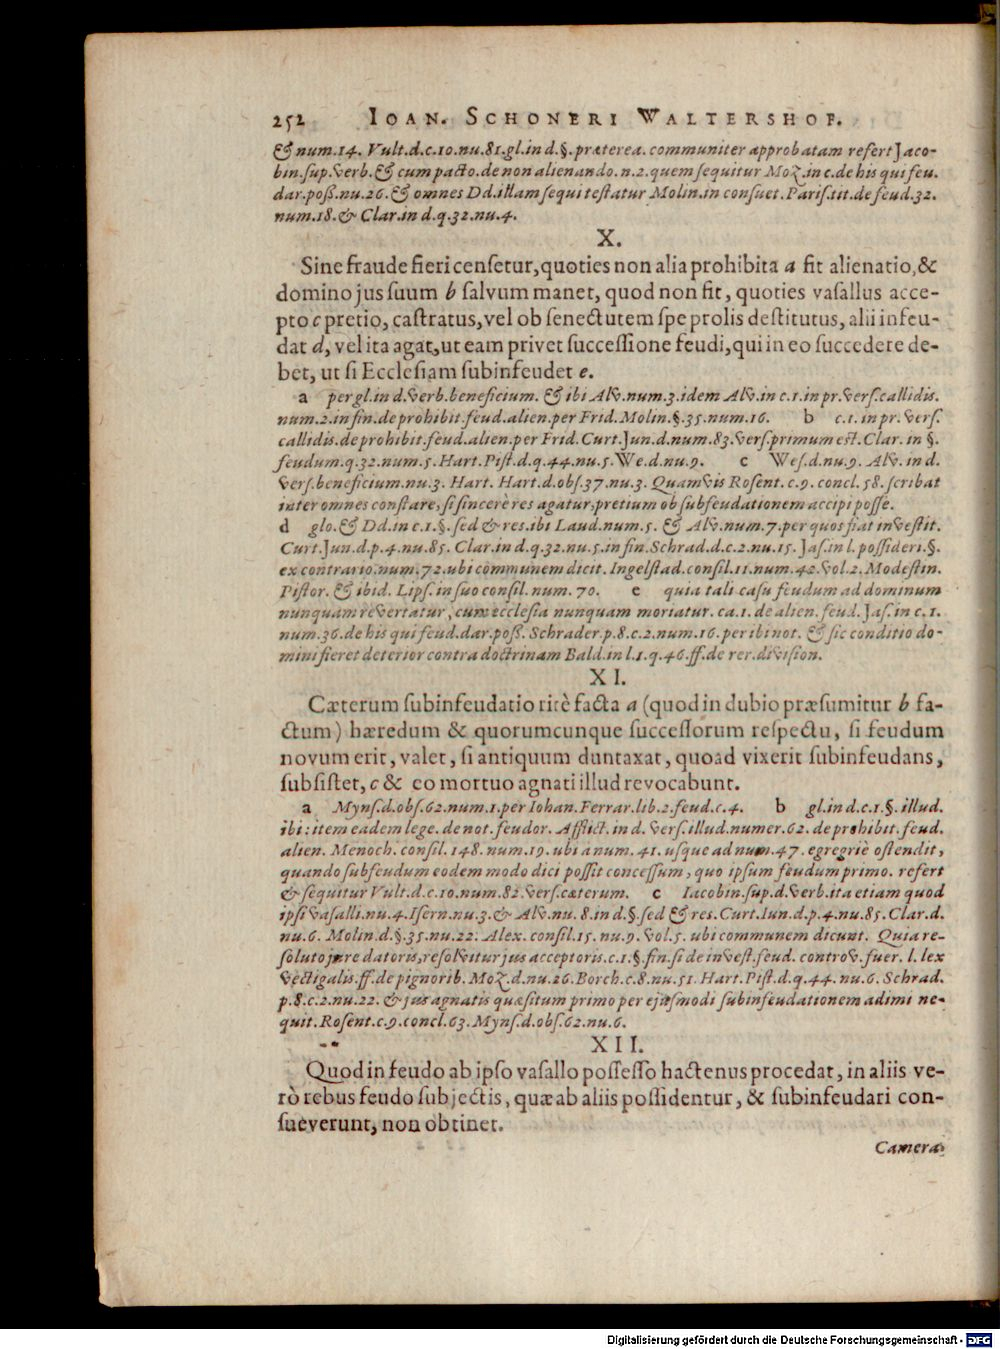 252 IOAN. SCHONERI WALTERSHOF.
& num.14. Vult.d.c.10.nu.81.gl.in d.§. præterea. communiter approbatam refert Jaco-
bin.sup.verb.& cum pacto.de non alienando.n.2.quem sequitur Moz.in c.de his qui feu.
dar.poß.nu.26.& omnes Dd.illam sequi testatur Molin.in consuet.Paris.tit.de feud.32.
num.18.& Clar.in d.q.32.nu.4.
X.
Sine fraude fieri censetur, quoties non alia prohibita a fit alienatio, &
domino jus suum b salvum manet, quod non fit, quoties vasallus acce-
pto c pretio, castratus, vel ob senectutem spe prolis destitutus, alii infeu-
dat d, vel ita agat, ut eam privet successione feudi, qui in eo succedere de-
bet, ut si Ecclesiam subinfeudet e.
a per gl.in d.verb.beneficium. & ibi Alv.num.3.idem Alv.in c.1.in pr.vers.callidis.
num.2.in fin.de prohibit.feud.alien.per Frid.Molin.§.35.num.16. b c.1.in pr.vers.
callidis.de prohibit.feud.alien.per Frid.Curt.Jun.d.num.83.vers.primum est.Clar.in §.
feudum.q.32.num.5.Hart.Pist.d.q.44.nu.5.We.d.nu.9. c Wes.d.nu.9. Alv.in d.
vers.beneficium.nu.3. Hart. Hart.d.obs.37.nu.3. Quamvis Rosent.c.9.concl.58.scribat
inter omnes constare, si sincerè res agatur, pretium ob subfeudationem accipi posse.
d glo.& Dd.in c.1.§.sed & res.ibi Laud.num.5. & Alv.num.7.per quos fiat investit.
Curt.Jun.d.p.4.nu.85. Clar.in d.q.32.nu.5.in fin.Schrad.d.c.2.nu.15.Jas.in l.possideri.§.
ex contrario.num.72.ubi communem dicit. Ingelstad.consil.11.num.42.Vol.2.Modestin.
Pistor. & ibid. Lips.in suo consil.num.70. e quia tali casu feudum ad dominum
nunquam revertatur, cum ecclesia nunquam moriatur. ca.1. de alien.feud.Jas.in c.1.
num.36.de his qui feud.dar.poß. Schrader.p.8.c.2.num.16.per ibi not. & sic conditio do-
mini fieret deterior contra doctrinam Bald.in l.1.q.46.ff.de rer.division.
XI.
Cæterum subinfeudatio ritè facta a (quod in dubio præsumitur b fa-
ctum) hæredum & quorumcunque successorum respectu, si feudum
novum erit, valet, si antiquum duntaxat, quoad vixerit subinfeudans,
subsistet, c & eo mortuo agnati illud revocabunt.
a Myns.d.obs.62.num.1.per Iohan.Ferrar.lib.2.feud.c.4. b gl.in d.c.1.§.illud.
ibi: item eadem lege. de not.feudor. Afflict.in d.vers.illud.numer.62. de prohibit.feud.
alien. Menoch.consil.148.num.19.ubi a num.41.usque ad num.47.egregriè ostendit,
quando subfeudum eodem modo dici possit concessum, quo ipsum feudum primo. refert
& sequitur Vult.d.c.10.num.82.vers.cæterum. c Iacobin.sup.d.verb.ita etiam quod
ipsi vasalli.nu.4.Isern.nu.3.& Alv.nu.8.in d.§.sed & res.Curt.Iun.d.p.4.nu.85.Clar.d.
nu.6. Molin.d.§.35.nu.22. Alex. consil.15.nu.9.Vol.5.ubi communem dicunt. Quia re-
soluto jure datoris, resolvitur jus acceptoris.c.1.§.fin.si de invest.feud.controv.fuer.l.lex
vectigalis.ff.de pignorib.Moz.d.nu.26.Borch.c.8.nu.51.Hart.Pist.d.q.44.nu.6.Schrad.
p.8.c.2.nu.22. & jus agnatis quæsitum primo per ejusmodi subinfeudationem adimi ne-
quit.Rosent.c.9.concl.63.Myns.d.obs.62.nu.6.
XII.
Quod in feudo ab ipso vasallo possesso hactenus procedat, in aliis ve-
rò rebus feudo subjectis, quæ ab aliis possidentur, & subinfeudari con-
sueverunt, non obtinet.
Camera
Digitalisierung gefördert durch die Deutsche Forschungsgemeinschaft - DFG